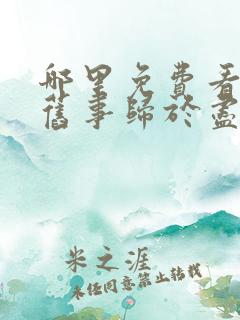 哪里免费看
舊事歸於盡
米之涯
未经同意禁止转载